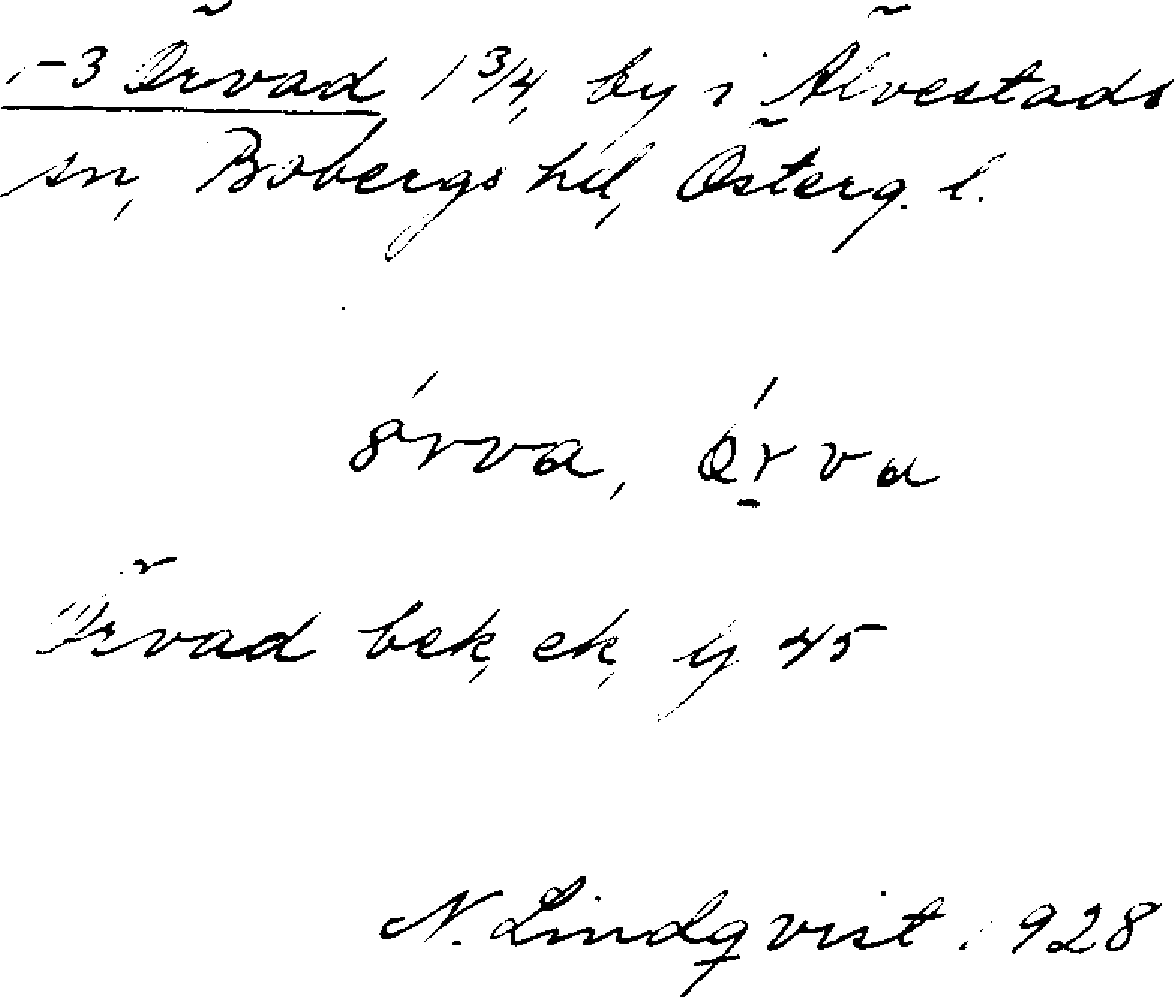 1-3 Örvad 1 3/4, by i Älvestads
sn, Bobergs hd, Österg. l.
órva, ó̱rva
Örvad bek, ek, lj 45
N. Lindqvist 1928